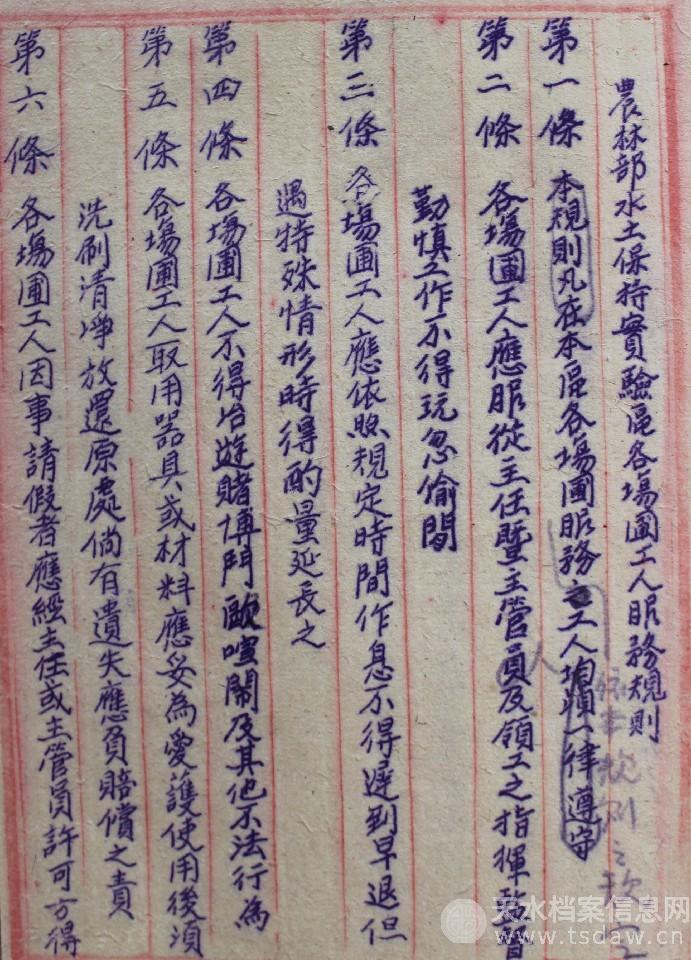 農林部水土保持實驗區各場圃工人服務規則
第一條 本規則凡在本區各場圃服務之工人均須一律遵守
依本規則之
第二條 各場圃工人應服從主任暨主管員及領工之指揮
人
勤慎工作不得玩忽偷閒
第三條 各場圃工人應依照規定時間作息不得遲到早退但
遇特殊情形時得酌量延長之
第四條 各場圃工人不得冶遊賭博鬥毆喧鬧及其他不法行為
第五條 各場圃工人取用器具或材料應妥為愛護使用後須
洗刷清凈放還原處倘有遺失應負賠償之責
第六條 各場圃工人因事請假者應經主任或主管員許可方得
天水档案信息网
www.tsdaw.cn